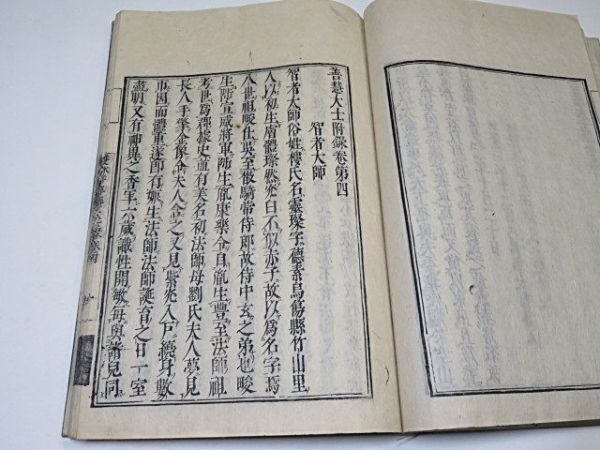 善慧大士附錄卷第四
智者大師
智者大師俗姓樓氏名靈璨字德素烏傷縣竹山里
人以初生膚體璨然光白不似赤子故以爲名字焉
八世祖畯仕吳至散騎常侍卽故侍中玄之弟也畯
生肪宣威將軍肪生胤康樂令自胤生豐至法師祖
考世爲郡掾史並有美名初法師母劉氏夫人夢見
長人手擎金像令夫人吞之又見紫光入戶繞身數
匝因而體重遂卽有娠生法師法師誕育之日一室
盡明又有神異之香年六歲識性開敏母與諸兒同